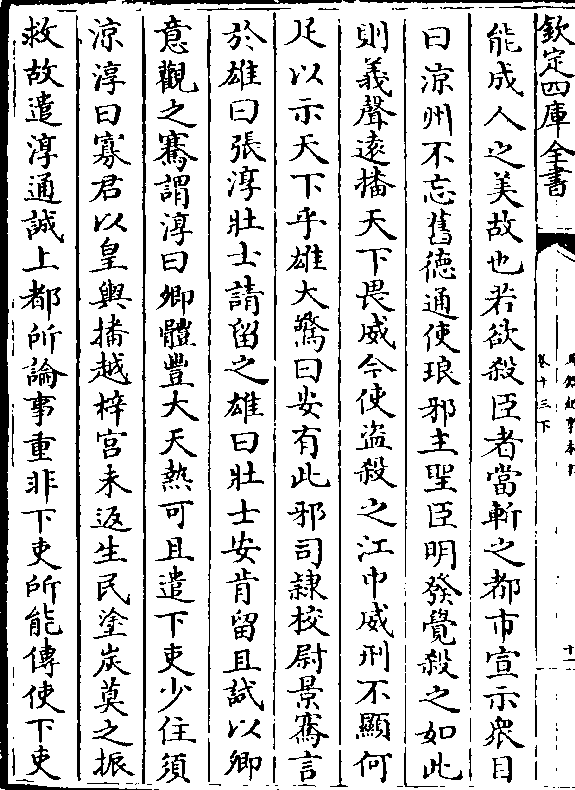 欽定四庫全書
卷十三下
十一
能成人之美故也若欲殺臣者當斬之都市宣示衆目
曰涼州不忘舊德通使琅邪主聖臣明發覺殺之如此
則義聲逺播天下畏威今使盗殺之江中威刑不顯何
足以示天下乎雄大驚曰安有此邪司隷校尉景騫言
於雄曰張淳壯士請留之雄曰壯士安肯留且試以卿
意觀之騫謂淳曰卿體豐大天熱可且遣下吏少住須
涼淳曰寡君以皇輿播越梓宫未返生民塗炭莫之振
救故遣淳通誠上都所論事重非下吏所能傳使下吏